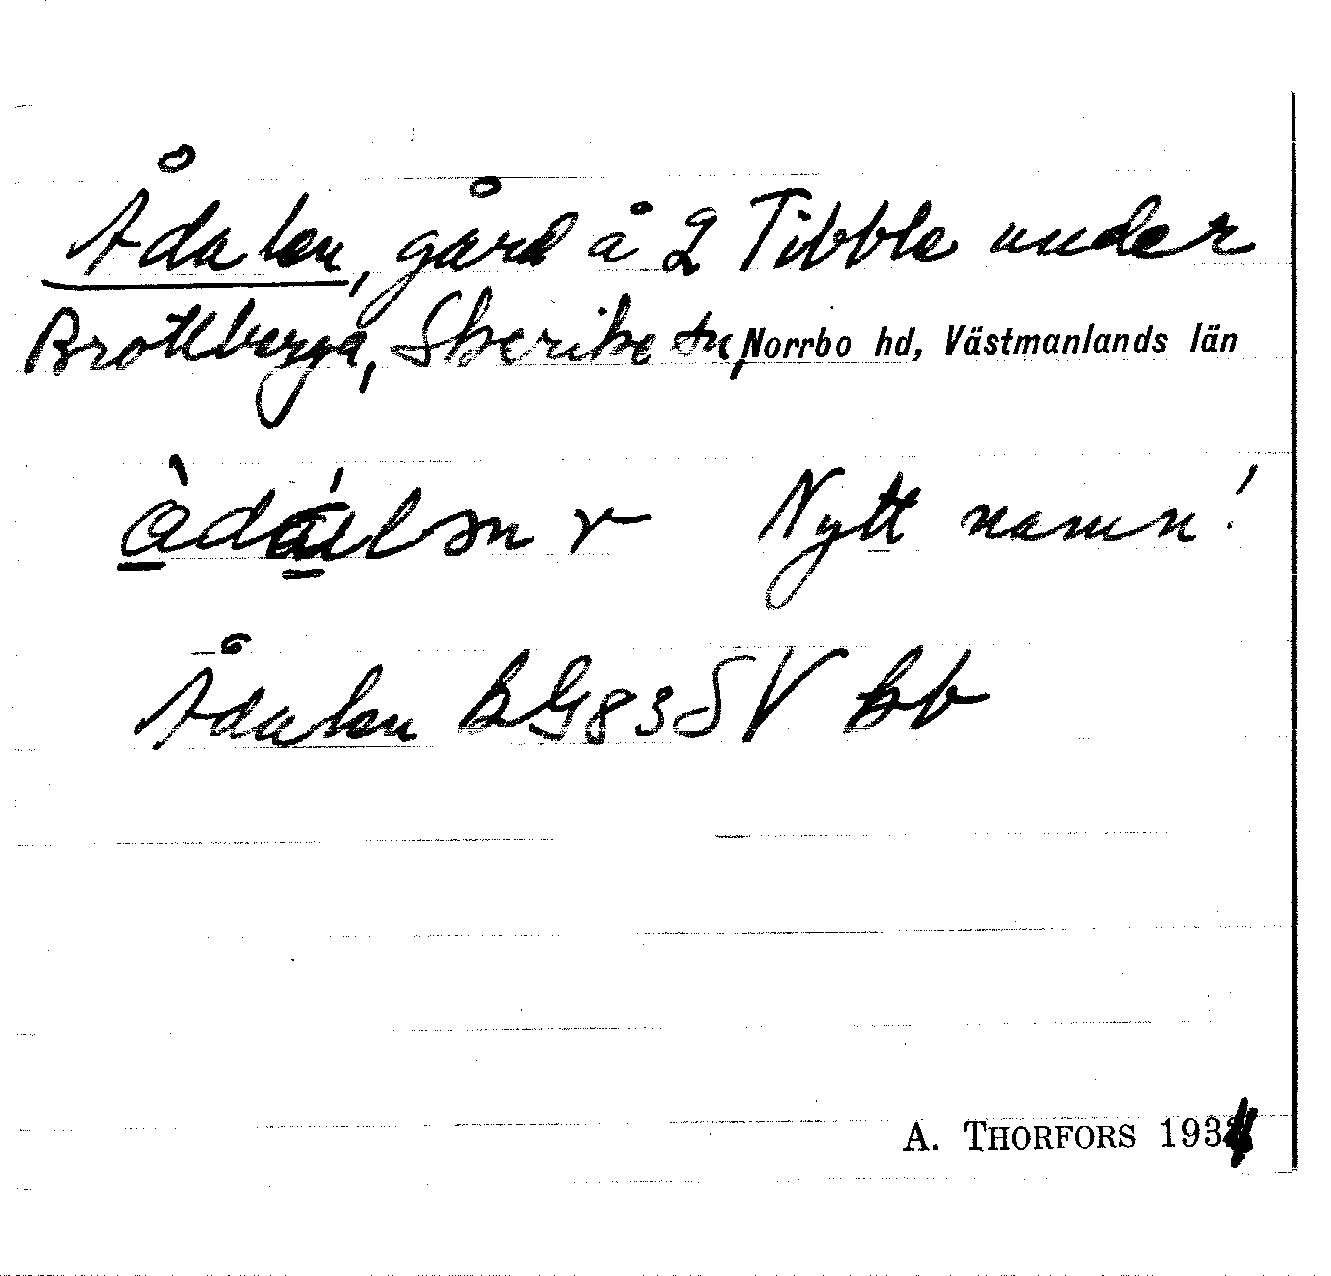 Ådalen, gård å 2 Tibble under
Brottberga, Skerike sn, Norrbo hd, Västmanlands län
Nytt namn!
Ådalen BG83SV bb
A. THORFORS 1934